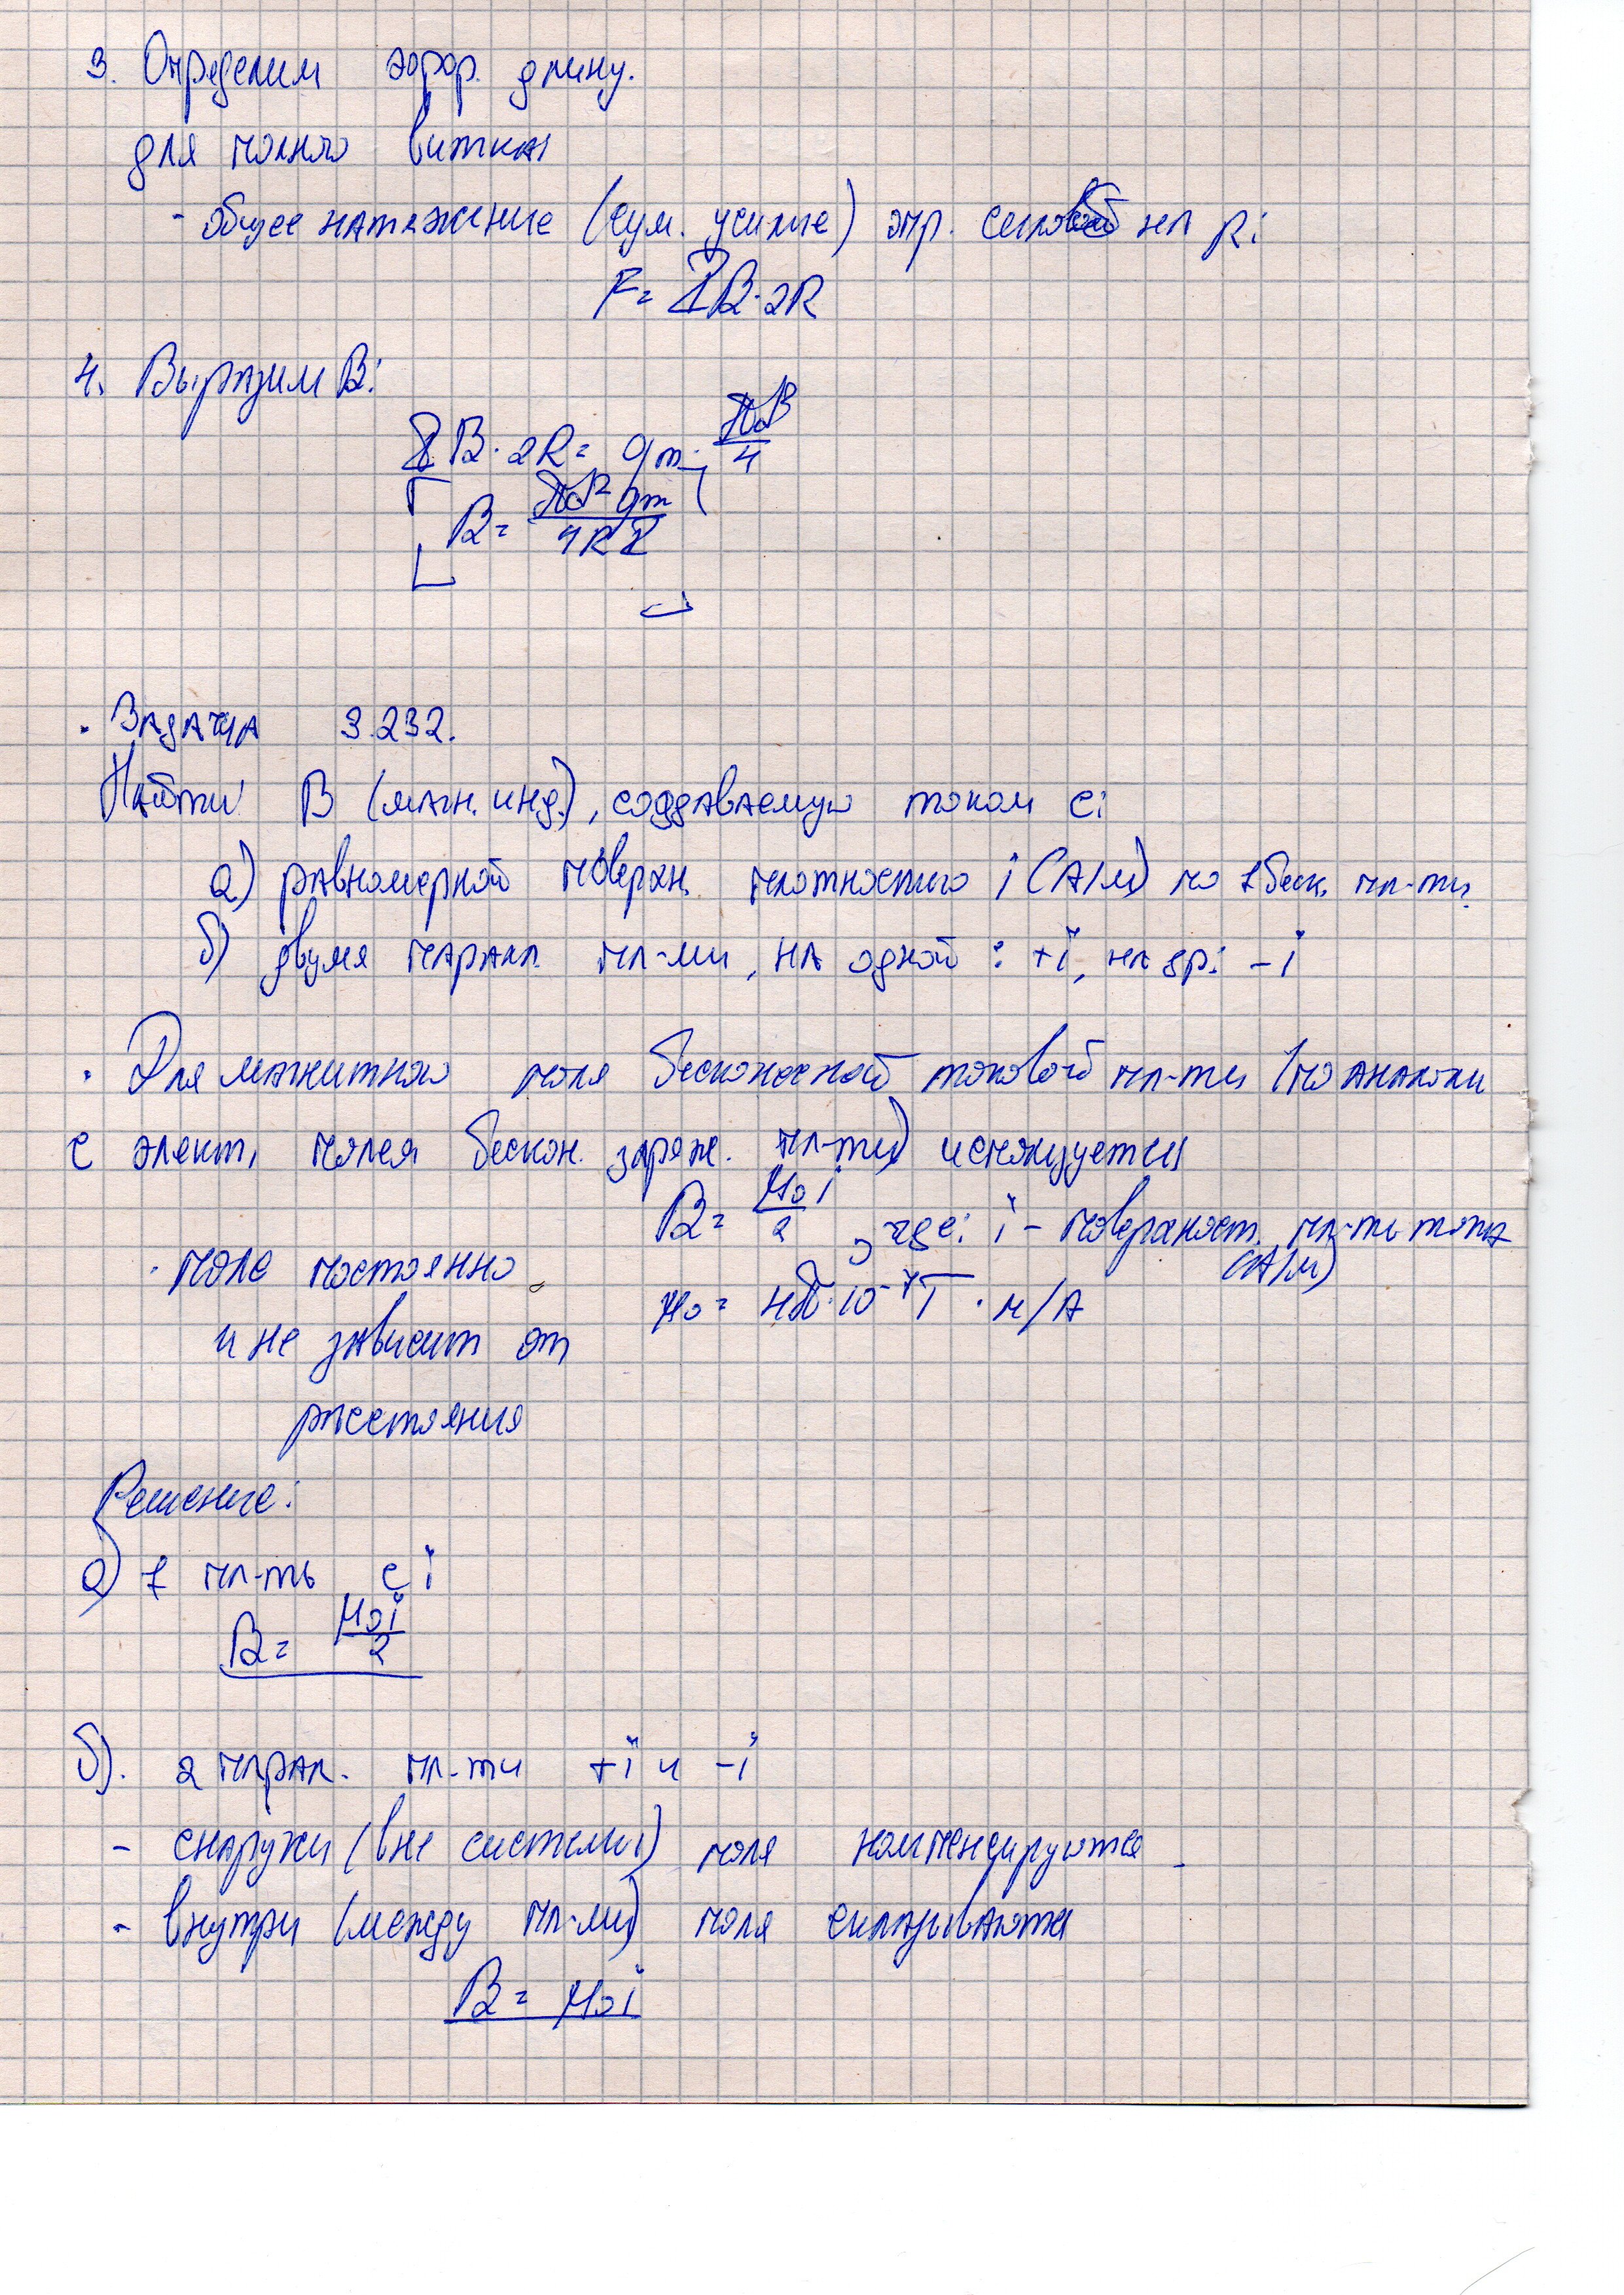 3. Определим эфф. длину.
для полного витка
- общее натяжение (сум. усилие) опр. силовой на R:
F = IB·2R
4. Выразим B:
IB·2R = qm · πd²/4
B = πd² qm / 4RI
· Задача 3.232.
Найти B (магн. инд.), создаваемую током с:
а) равномерной поверхн. плотностью i (А/м) по 1 беск. пл-ти.
б) двумя паралл. пл-ми, на одной: +i, на др: -i
· Для магнитного поля бесконечной токовой пл-ти (по аналогии
с элект. полем бескон. заряж. пл-ти) используется
B = μ₀i/2, где: i - поверхност. пл-ть тока
(А/м)
· поле постоянно
μ₀ = 4π·10⁻⁷ Т · м/А
и не зависит от
расстояния
Решение:
а) 1 пл-ть с i
B = μ₀i/2
б). 2 парал. пл-ти +i и -i
- снаружи (вне системы) поля компенсируются
- внутри (между пл-ми) поля складываются
B = μ₀i